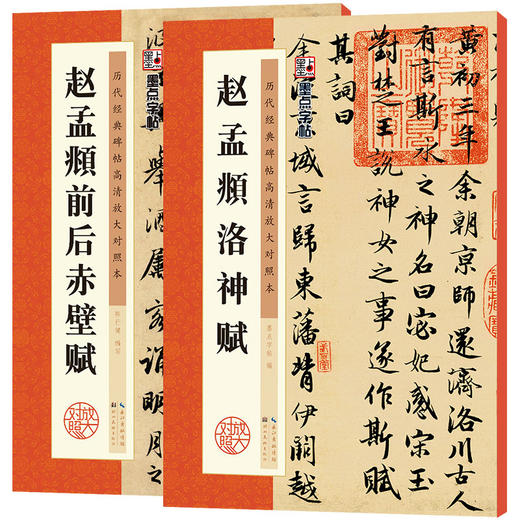 墨点
墨点字帖
历代经典碑帖高清放大对照本
赵孟頫前后赤壁赋
放大对照
举酒属客诵明月之
墨点
墨点字帖
历代经典碑帖高清放大对照本
赵孟頫洛神赋
墨点字帖 编
放大对照
黄初三年余朝京師還濟洛川古人
有言斯水之神名曰宓妃感宋玉
對楚王說神女之事遂作斯賦
其詞曰
余従京域言歸東藩背伊闕越